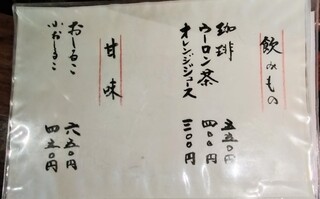 飲みもの
珈琲 五五〇円
ウーロン茶 四〇〇円
オレンジジュース 三〇〇円
甘味
おしるこ 六五〇円
小おしるこ 四五〇円